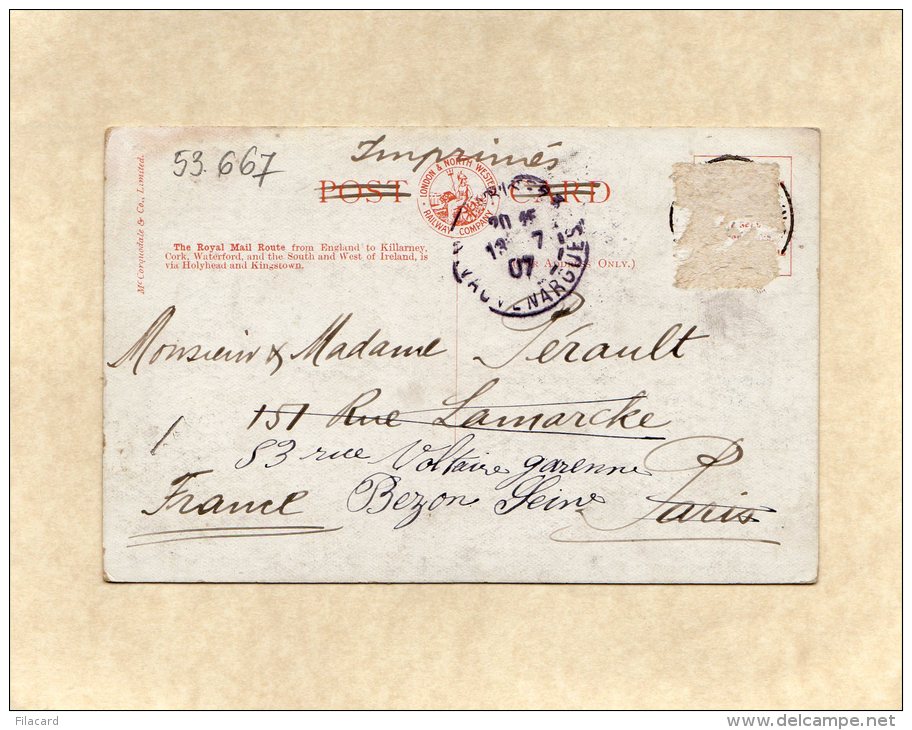 53.667
Imprimés
POST CARD
LONDON & NORTH WESTERN RAILWAY COMPANY
McCorquodale & Co., Limited.
The Royal Mail Route from England to Killarney,
Cork, Waterford, and the South and West of Ireland, is
via Holyhead and Kingstown.
Address Only.)
7
07
VAUVENARGUES
Monsieur & Madame Pérault
151 Rue Lamarcke
83 rue Voltaire garenne
Bezon Seine
Paris
France
Filacard
www.delcampe.net